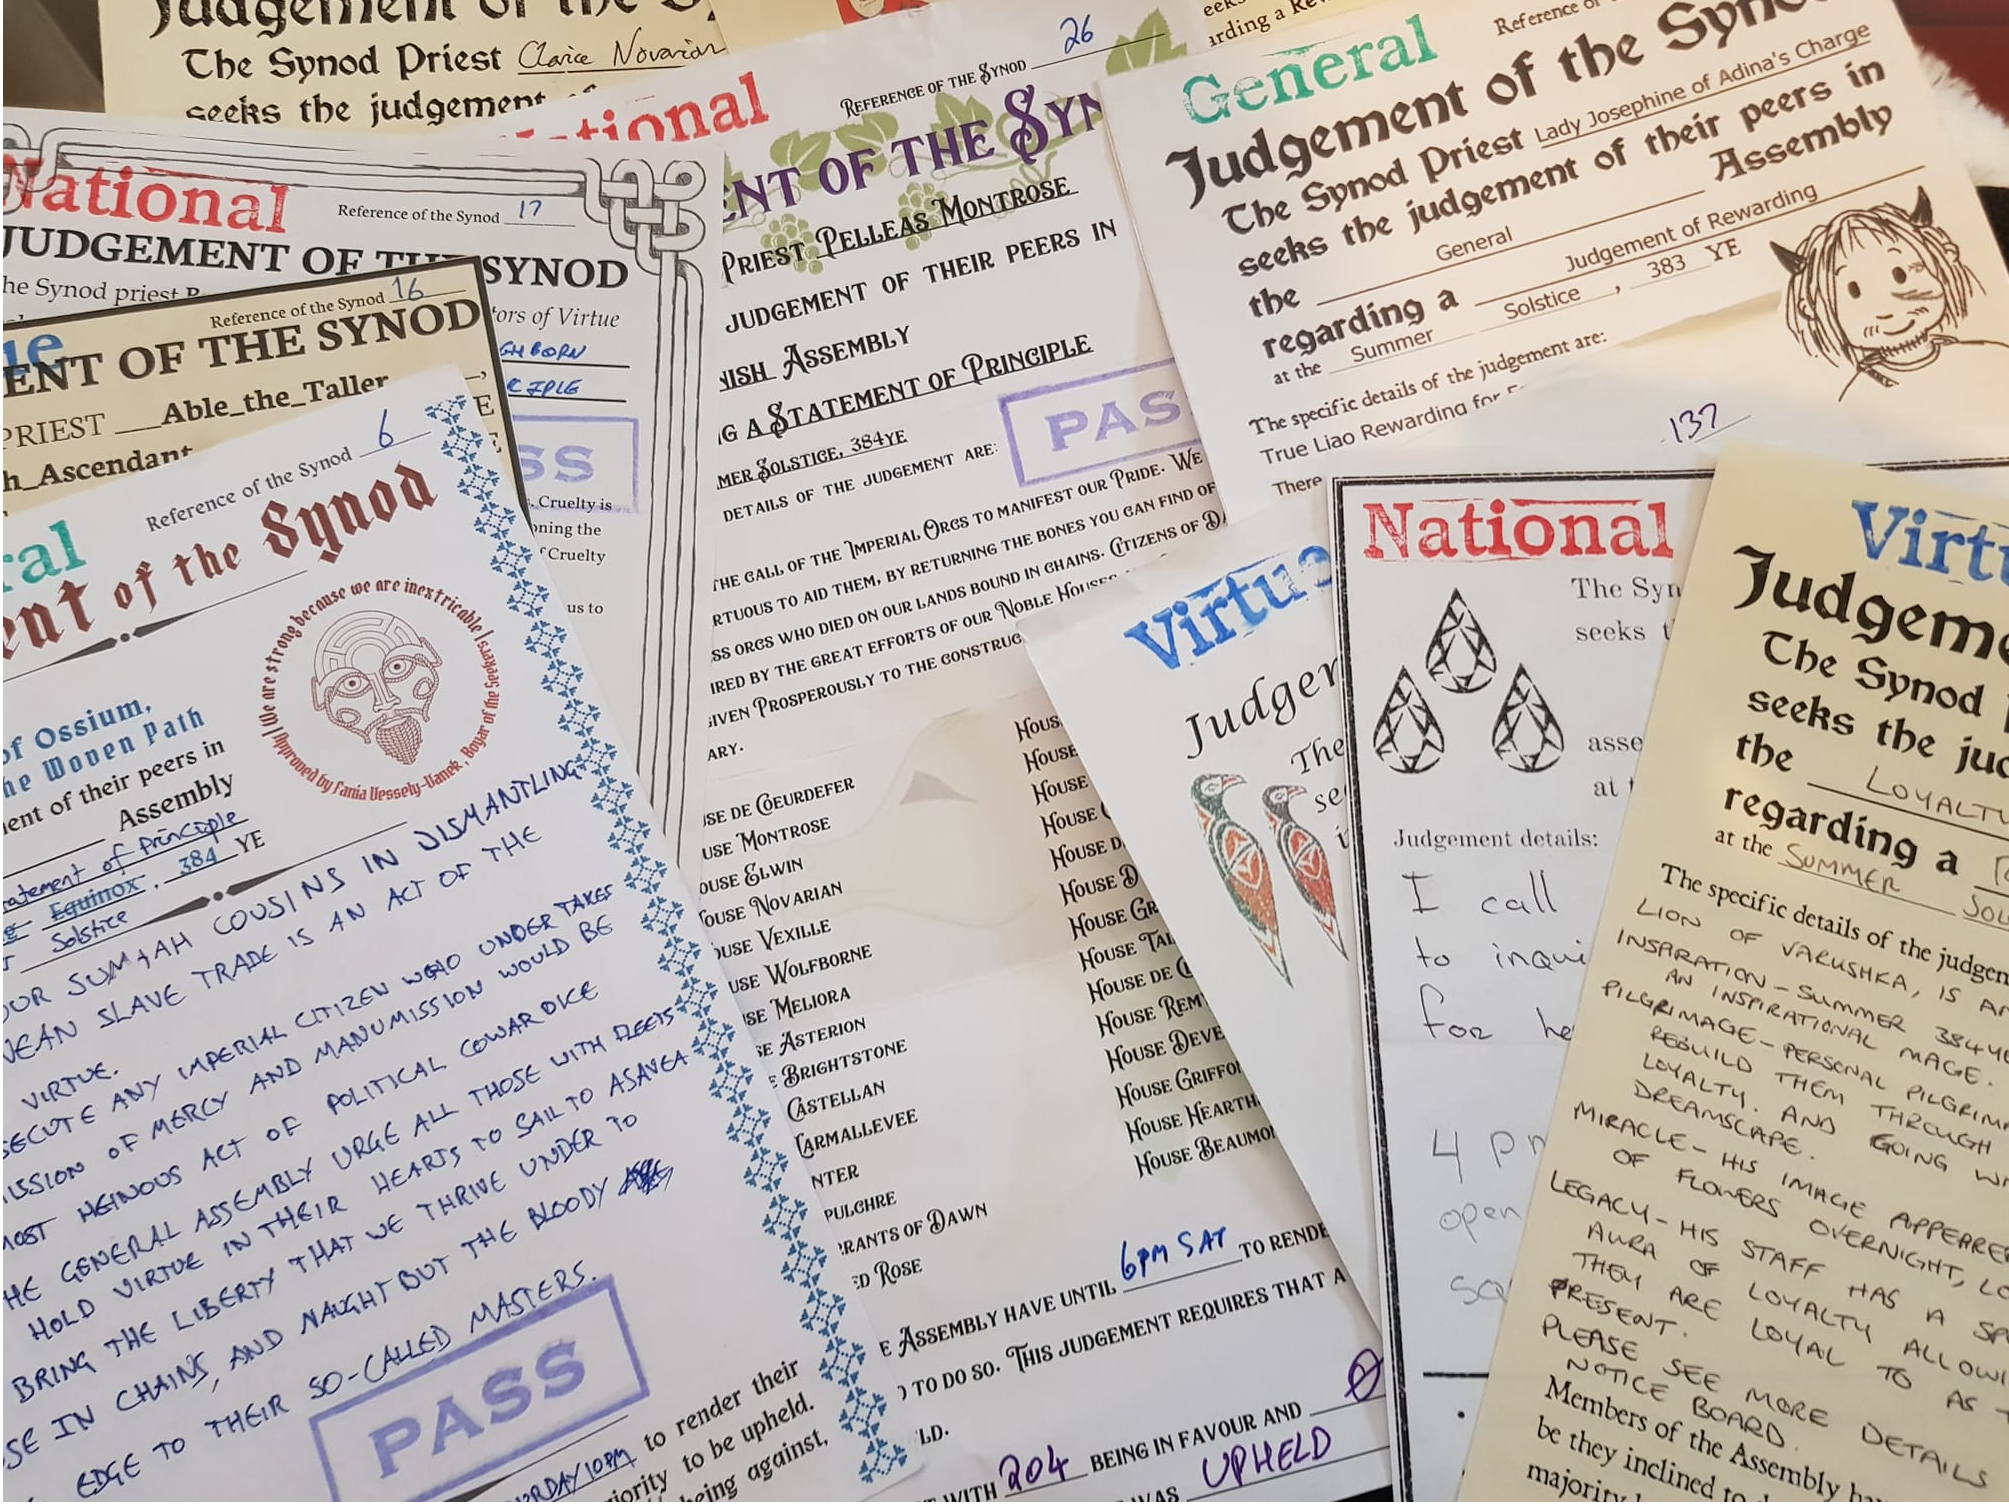 Judgement of the
The Synod Priest Clarice Novarian
seeks the judgement
National
Reference of the Synod 17
JUDGEMENT OF THE SYNOD
he Synod priest
tors of Virtue
GHBORN
CIPLE
SS
Cruelty is
oning the
f Cruelty
us to
Reference of the Synod 16
ENT OF THE SYNOD
PRIEST Able_the_Taller
h_Ascendant
Reference of the Synod 6
ral
ent of the Synod
We are strong because we are inextricable
Approved by Fania Vessely-Vanek, Boyar of the Seekers
of Ossium,
he Woven Path
ent of their peers in
Assembly
Statement of Principle
Equinox, 384 YE
Solstice
OUR SUMAAH COUSINS IN DISMANTLING
SLAVE TRADE IS AN ACT OF THE
VIRTUE.
ECUTE ANY IMPERIAL CITIZEN WHO UNDERTAKES
ISSION OF MERCY AND MANUMISSION WOULD BE
MOST HEINOUS ACT OF POLITICAL COWARDICE
HE GENERAL ASSEMBLY URGE ALL THOSE WITH FLEETS
HOLD VIRTUE IN THEIR HEARTS TO SAIL TO ASAVEA
BRING THE LIBERTY THAT WE THRIVE UNDER TO
SE IN CHAINS, AND NAUGHT BUT THE BLOODY
EDGE TO THEIR SO-CALLED MASTERS.
PASS
RDAY 10PM to render their
jority to be upheld.
being against,
National
Reference of the Synod 26
ENT OF THE SYN
PRIEST PELLEAS MONTROSE
JUDGEMENT OF THEIR PEERS IN
NISH ASSEMBLY
G A STATEMENT OF PRINCIPLE
MER SOLSTICE, 384YE
PAS
DETAILS OF THE JUDGEMENT ARE:
THE CALL OF THE IMPERIAL ORCS TO MANIFEST OUR PRIDE. WE
RTUOUS TO AID THEM, BY RETURNING THE BONES YOU CAN FIND OF
SS ORCS WHO DIED ON OUR LANDS BOUND IN CHAINS. CITIZENS OF DA
IRED BY THE GREAT EFFORTS OF OUR NOBLE HOUSES
IVEN PROSPEROUSLY TO THE CONSTRUC
ARY.
SE DE COEURDEFER
USE MONTROSE
OUSE ELWIN
OUSE NOVARIAN
OUSE VEXILLE
USE WOLFBORNE
SE MELIORA
E ASTERION
BRIGHTSTONE
CASTELLAN
CARMALLEVEE
NTER
PULCHRE
RRANTS OF DAWN
ED ROSE
HOUS
HOUSE
HOUSE
HOUSE
HOUSE D
HOUSE D
HOUSE GR
HOUSE TAL
HOUSE DE
HOUSE REM
HOUSE DEVE
HOUSE GRIFFO
HOUSE HEARTH
HOUSE BEAUMO
E ASSEMBLY HAVE UNTIL 6PM SAT TO RENDE
TO DO SO. THIS JUDGEMENT REQUIRES THAT A
LD.
WITH 204 BEING IN FAVOUR AND 0
WAS UPHELD
General
Reference of
Judgement of the Syno
The Synod Priest Lady Josephine of Adina's Charge
seeks the judgement of their peers in
the General Assembly
regarding a Judgement of Rewarding
at the Summer Solstice, 383 YE
The specific details of the judgement are:
True Liao Rewarding for
There
137
Virtue
Judgem
The
se
National
The Syn
seeks t
asse
at
Judgement details:
I call
to inqui
for he
4 pm
open
Virtu
Judgeme
The Synod
seeks the jud
the LOYALTY
regarding a
at the SUMMER SOL
The specific details of the judgem
LION OF VARUSHKA, IS AN
INSPIRATION - SUMMER 384YE
AN INSPIRATIONAL MAGE.
PILGRIMAGE - PERSONAL PILGRIM
REBUILD THEM THROUGH
LOYALTY. AND GOING WI
DREAMSCAPE.
MIRACLE - HIS IMAGE APPEARED
OF FLOWERS OVERNIGHT, LO
LEGACY - HIS STAFF HAS A SP
AURA OF LOYALTY ALLOWI
THEY ARE LOYAL TO AS T
PRESENT.
PLEASE SEE MORE DETAILS
NOTICE BOARD.
Members of the Assembly ha
be they inclined to d
majority